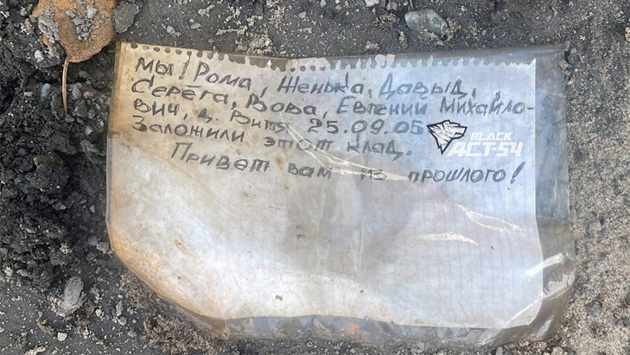 Мы! Рома, Женька, Давыд,
Серега, Вова, Евгений Михайло-
вич, д. Витя 25.09.05
Заложили этот клад.
Привет вам из прошлого!
BLACK
ACT-54